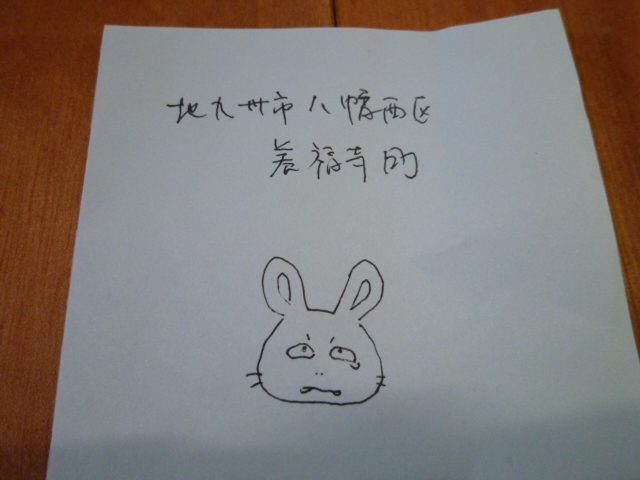 北九州市八幡西区
養福寺町